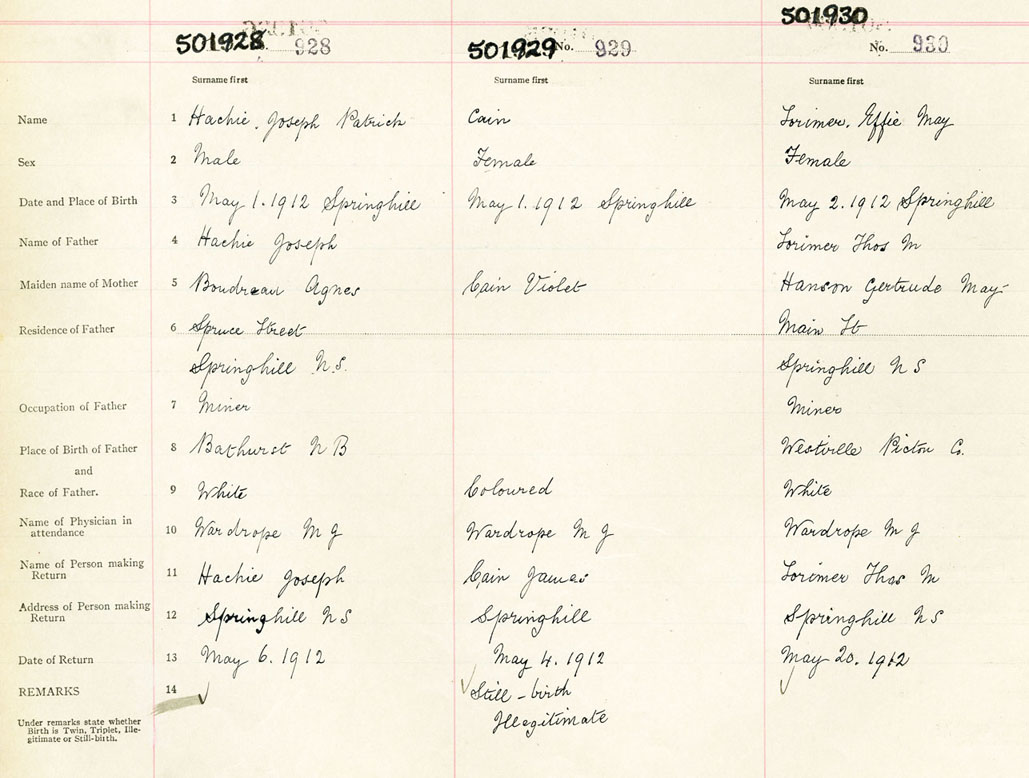 501930
501928 928 501929 No. 929 No. 930
Surname first Surname first Surname first
Name 1 Hachie, Joseph Patrick Cain Lorimer, Effie May
Sex 2 Male Female Female
Date and Place of Birth 3 May 1. 1912 Springhill May 1. 1912 Springhill May 2. 1912 Springhill
Name of Father 4 Hachie Joseph Lorimer Thos M
Maiden name of Mother 5 Boudreau Agnes Cain Violet Hanson Gertrude May
Residence of Father 6 Spruce Street Main St
Springhill N.S. Springhill N S
Occupation of Father 7 Miner Miner
Place of Birth of Father 8 Bathurst N B Westville Pictou Co.
and
Race of Father. 9 White Coloured White
Name of Physician in
attendance 10 Wardrope M J Wardrope M J Wardrope M J
Name of Person making
Return 11 Hachie Joseph Cain James Lorimer Thos M
Address of Person making
Return 12 Springhill N S Springhill Springhill N S
Date of Return 13 May 6. 1912 May 4. 1912 May 20. 1912
REMARKS 14 Still-birth
Illegitimate
Under remarks state whether
Birth is Twin, Triplet, Ille-
gitimate or Still-birth.